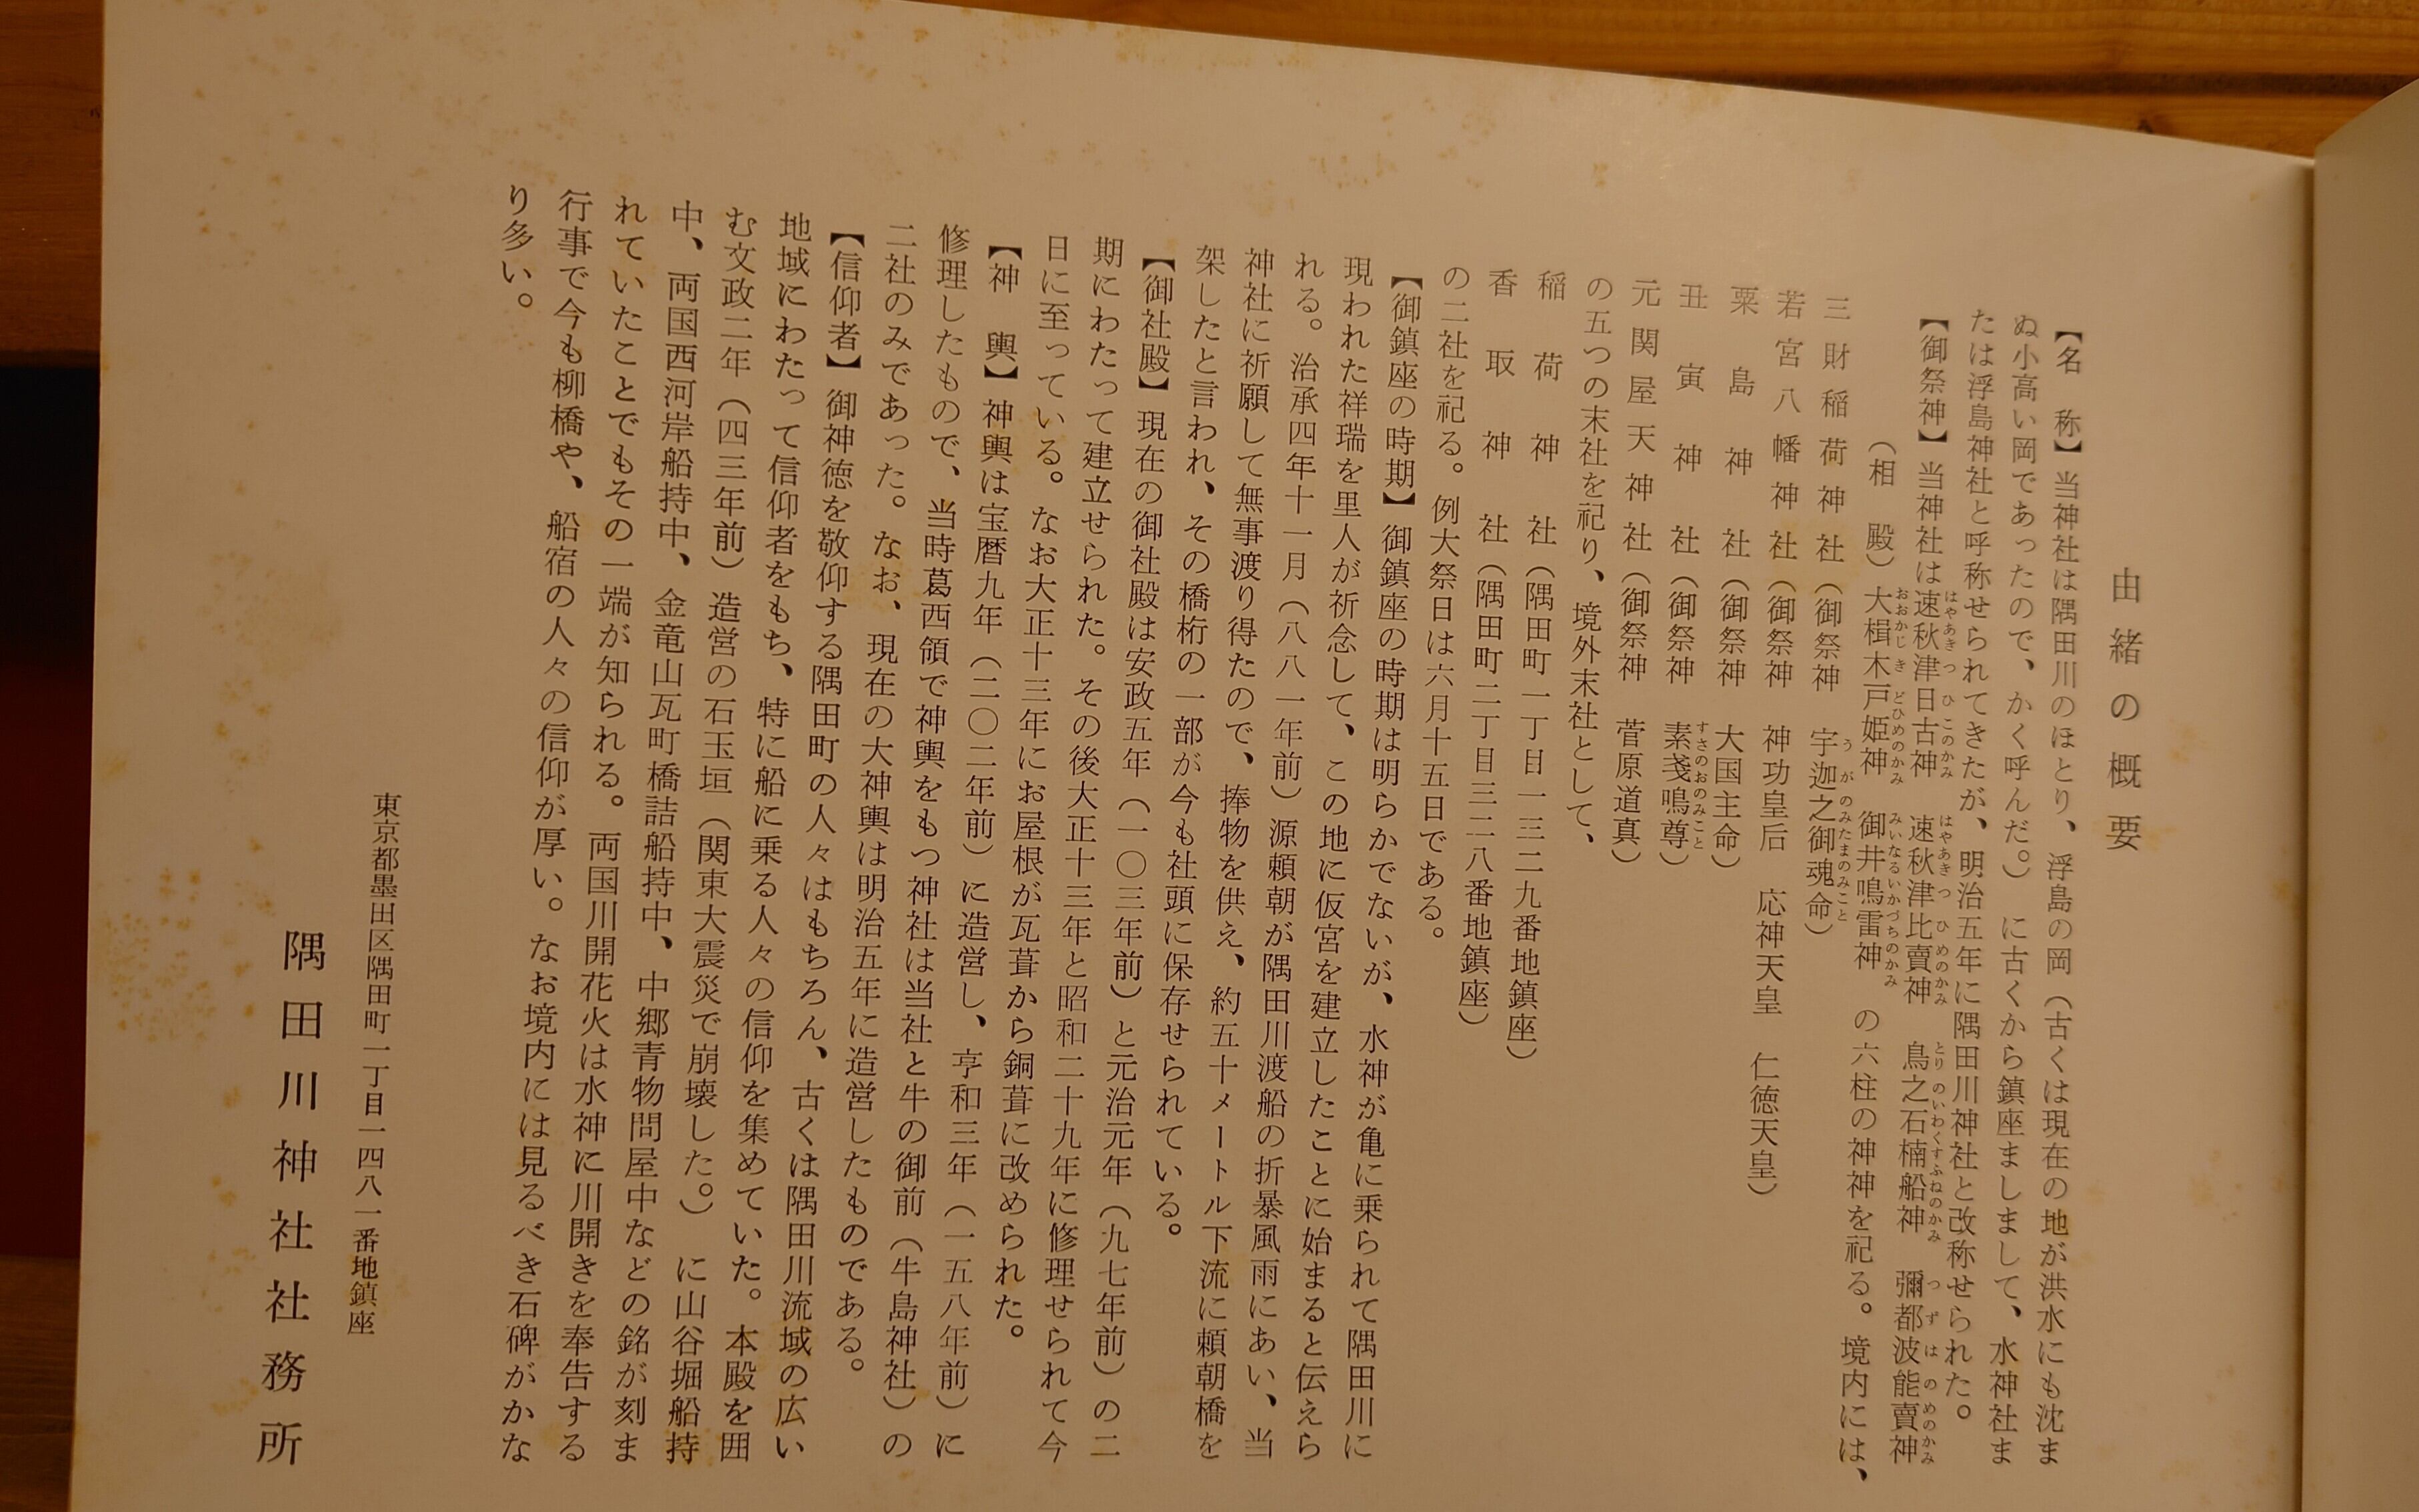 由緒の概要
【名　称】当神社は隅田川のほとり、浮島の岡（古くは現在の地が洪水にも沈ま
ぬ小高い岡であったので、かく呼んだ。）に古くから鎮座ましまして、水神社ま
たは浮島神社と呼称せられてきたが、明治五年に隅田川神社と改称せられた。
【御祭神】当神社は速秋津日古神　速秋津比賣神　鳥之石楠船神　彌都波能賣神
はやあきつひこのかみ　はやあきつひめのかみ　とりのいわくすふねのかみ　つずはのめのかみ
（相　殿）大楫木戸姫神　御井鳴雷神　の六柱の神神を祀る。境内には、
おおかじきどひめのかみ　みいなるいかづちのかみ
三財稲荷神社（御祭神　宇迦之御魂命）
うがのみたまのみこと
若宮八幡神社（御祭神　神功皇后　応神天皇　仁徳天皇）
粟島神社（御祭神　大国主命）
丑寅神社（御祭神　素戔鳴尊）
すさのおのみこと
元関屋天神社（御祭神　菅原道真）
の五つの末社を祀り、境外末社として、
稲荷神社（隅田町一丁目一三二九番地鎮座）
香取神社（隅田町二丁目三二八番地鎮座）
の二社を祀る。例大祭日は六月十五日である。
【御鎮座の時期】御鎮座の時期は明らかでないが、水神が亀に乗られて隅田川に
現われた祥瑞を里人が祈念して、この地に仮宮を建立したことに始まると伝えら
れる。治承四年十一月（八八一年前）源頼朝が隅田川渡船の折暴風雨にあい、当
神社に祈願して無事渡り得たので、捧物を供え、約五十メートル下流に頼朝橋を
架したと言われ、その橋桁の一部が今も社頭に保存せられている。
【御社殿】現在の御社殿は安政五年（一〇三年前）と元治元年（九七年前）の二
期にわたって建立せられた。その後大正十三年と昭和二十九年に修理せられて今
日に至っている。なお大正十三年にお屋根が瓦葺から銅葺に改められた。
【神　輿】神輿は宝暦九年（二〇二年前）に造営し、享和三年（一五八年前）に
修理したもので、当時葛西領で神輿をもつ神社は当社と牛の御前（牛島神社）の
二社のみであった。なお、現在の大神輿は明治五年に造営したものである。
【信仰者】御神徳を敬仰する隅田町の人々はもちろん、古くは隅田川流域の広い
地域にわたって信仰者をもち、特に船に乗る人々の信仰を集めていた。本殿を囲
む文政二年（四三年前）造営の石玉垣（関東大震災で崩壊した。）に山谷堀船持
中、両国西河岸船持中、金竜山瓦町橋詰船持中、中郷青物問屋中などの銘が刻ま
れていたことでもその一端が知られる。両国川開花火は水神に川開きを奉告する
行事で今も柳橋や、船宿の人々の信仰が厚い。なお境内には見るべき石碑がかな
り多い。
東京都墨田区隅田町一丁目一四八一番地鎮座
隅田川神社社務所